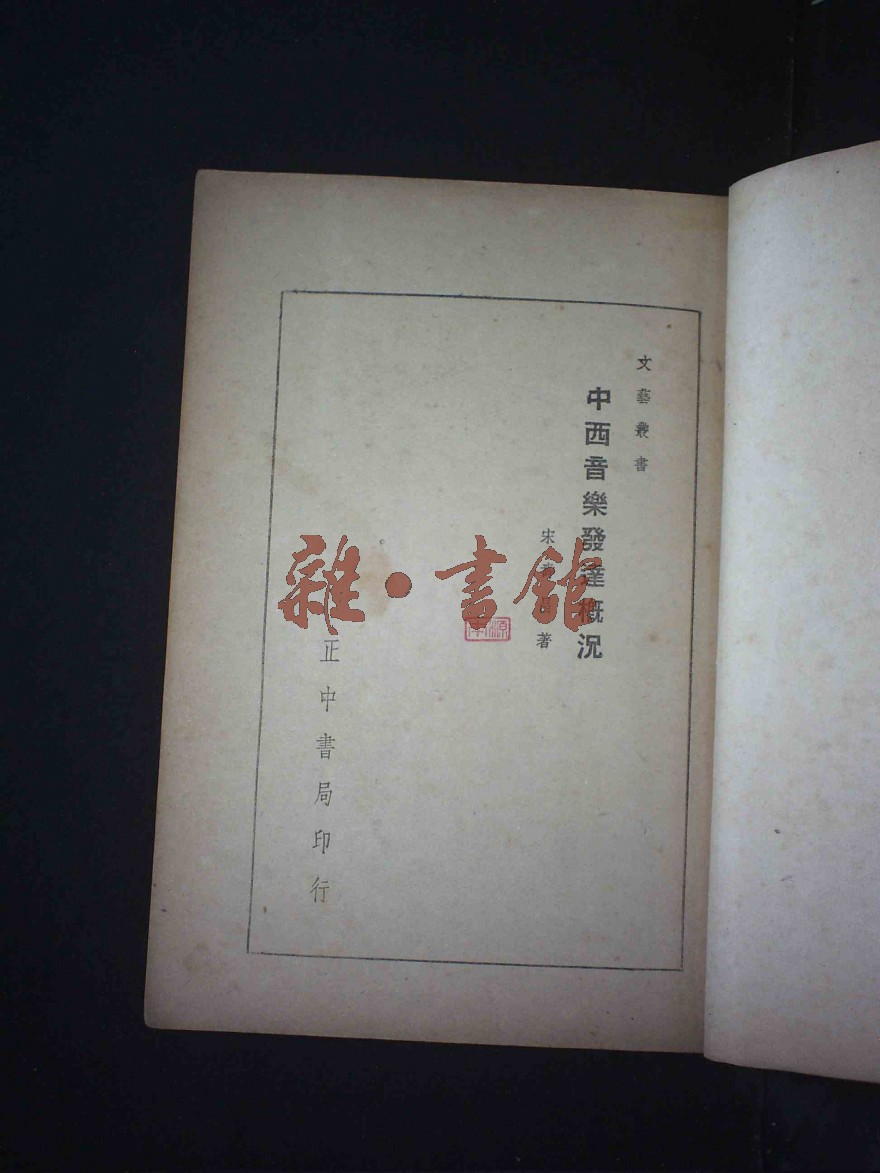 文藝叢書
中西音樂發達概況
宋 著
正中書局印行
雜·書館